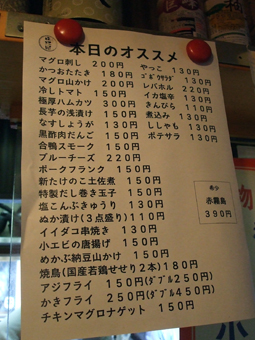 本日のオススメ
マグロ刺し 200円
かつおたたき 180円
マグロ山かけ 200円
冷しトマト 150円
極厚ハムカツ 300円
長芋の浅漬け 150円
なすしょうが 130円
黒酢肉だんご 150円
合鴨スモーク 150円
ブルーチーズ 220円
ポークフランク 150円
新たけのこ土佐煮 150円
特製だし巻き玉子 150円
塩こんぶきゅうり 130円
ぬか漬け(3点盛り)110円
イイダコ串焼き 130円
小エビの唐揚げ 150円
めかぶ納豆山かけ 150円
焼鳥(国産若鶏せせり2本)180円
アジフライ 150円(ダブル250円)
かきフライ 250円(ダブル450円)
チキンマグロナゲット 150円
やっこ 130円
ゴボウサラダ 130円
レバホル 220円
イカ塩辛 130円
きんぴら 110円
煮込み 130円
ししゃも 130円
ポテサラ 130円
希少
赤霧島
390円